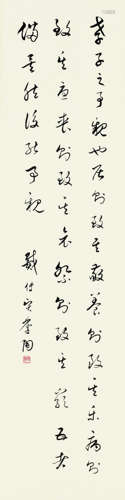 孝子之事親也居則致其敬養則致其樂病則
致其憂喪則致其哀祭則致其嚴五者
備矣然後能事親
戴傳賢孝園